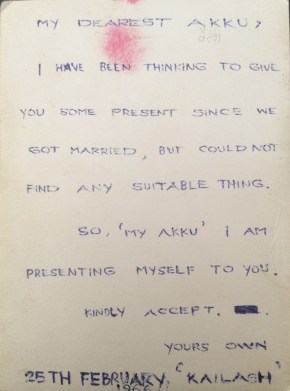 MY DEAREST AKKU,
I HAVE BEEN THINKING TO GIVE
YOU SOME PRESENT SINCE WE
GOT MARRIED, BUT COULD NOT
FIND ANY SUITABLE THING.
SO, 'MY AKKU' I AM
PRESENTING MYSELF TO YOU.
KINDLY ACCEPT.
YOURS OWN
25TH FEBRUARY, 'KAILASH'
1966